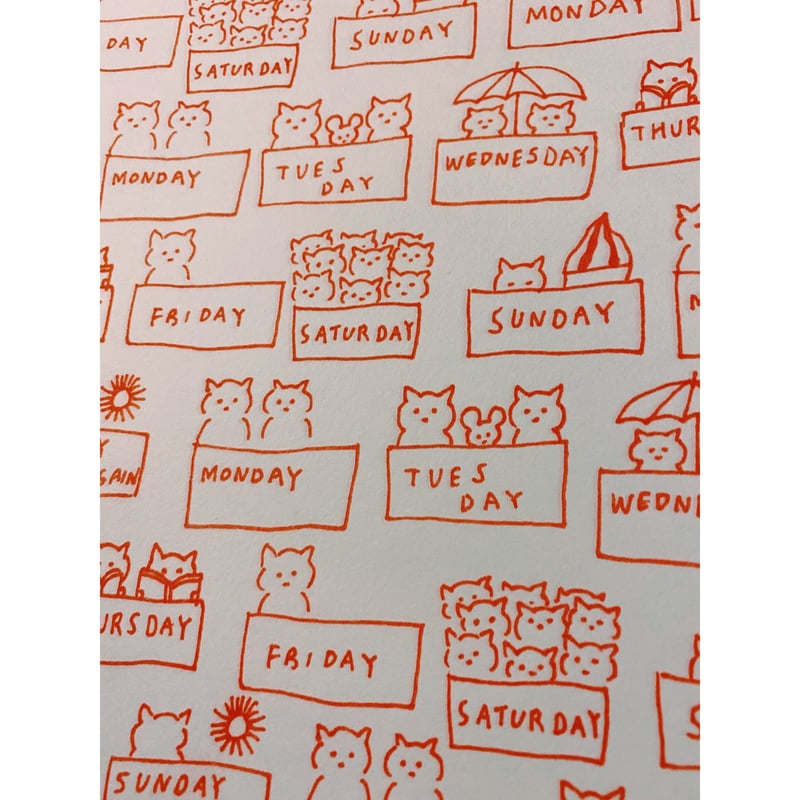 DAY
SATURDAY
SUNDAY
MONDAY
MONDAY
TUES
DAY
WEDNESDAY
THUR
FRIDAY
SATURDAY
SUNDAY
M
Y
GAIN
MONDAY
TUES
DAY
WEDN
URSDAY
FRIDAY
SATURDAY
S
SUNDAY